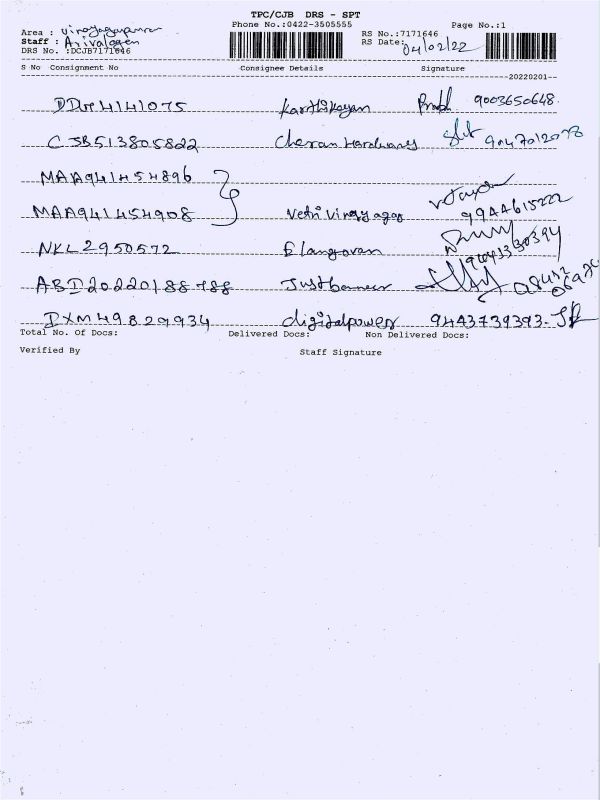 TPC/CJB DRS - SPT
Area : Vinayagapuram Phone No.:0422-3505555 Page No.:1
Staff : Arivalagan RS No.:7171646
DRS No. :DCJB7171646 RS Date: 04/02/22
S No Consignment No Consignee Details Signature
20220201--
4141075 Karthikeyan 9003650648
CJB513805822 Cheran Hardwares 9047012078
MAA941454896
MAA941454908 Vetri Vinayagaa 9944615222
NKL2950572 Elangovan
ABD20220188788 Justbanner
IXM49829934 digitalpower 9443739393
Total No. Of Docs: Delivered Docs: Non Delivered Docs:
Verified By Staff Signature